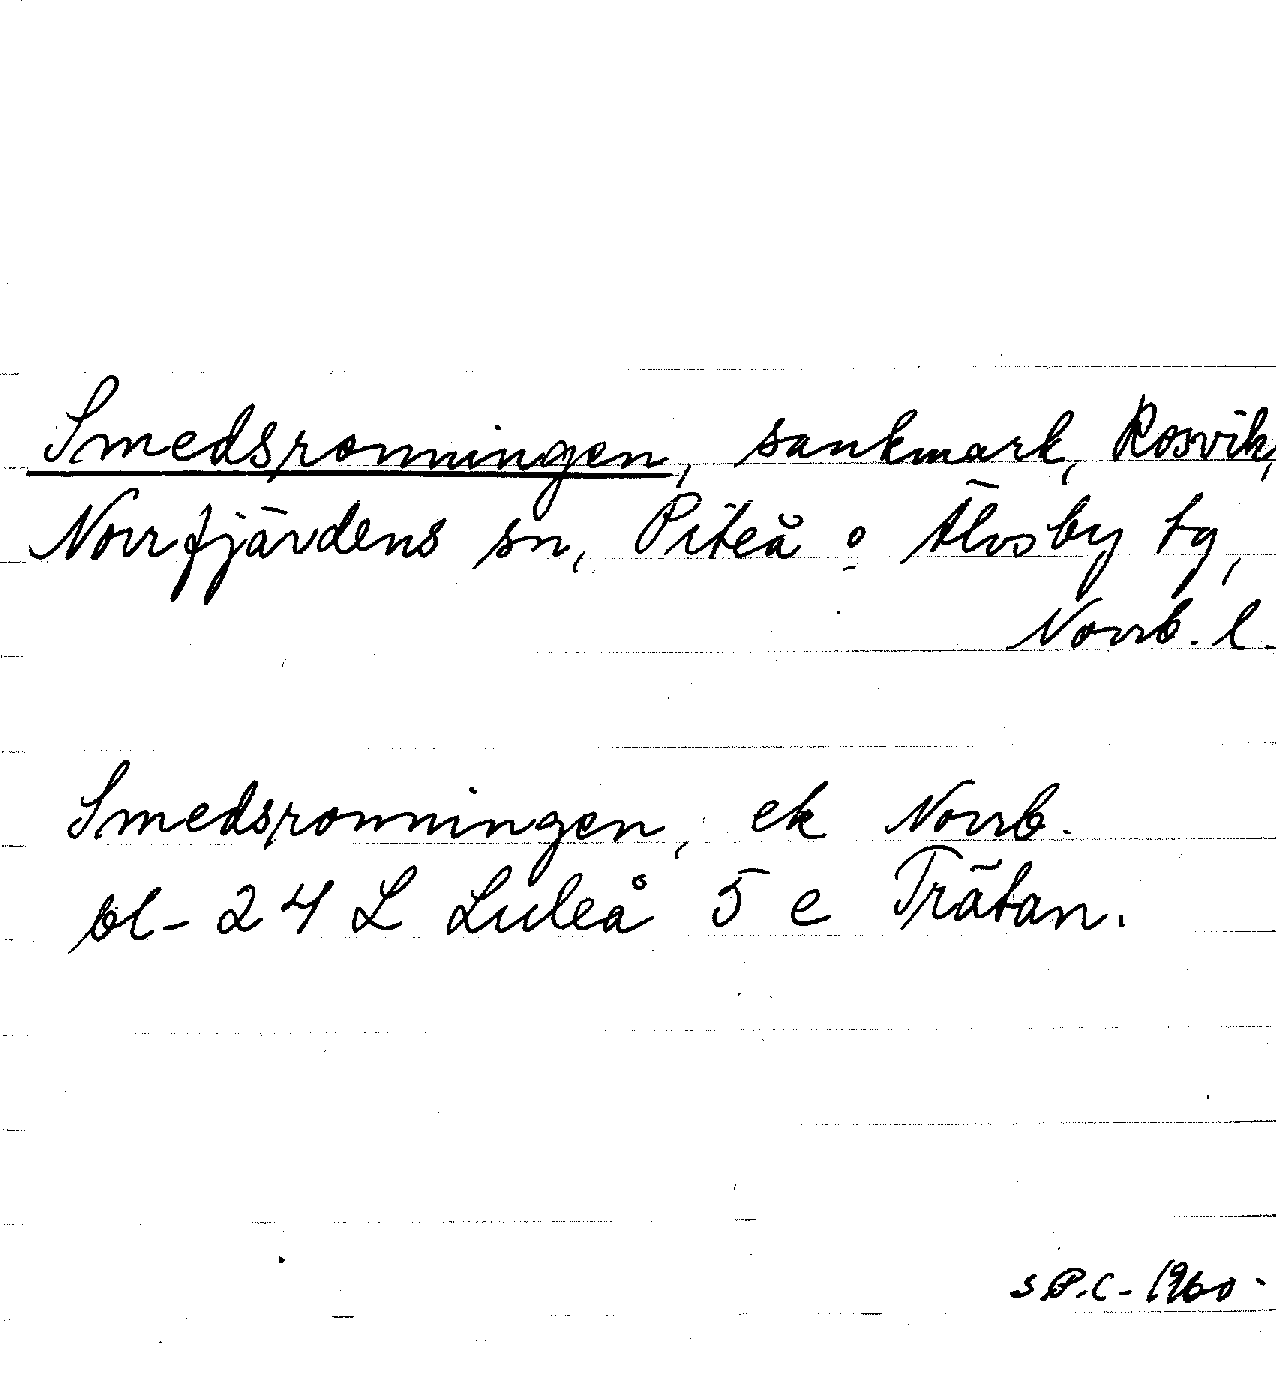 Smedsronningen, sankmark, Rosvik,
Norrfjärdens sn, Piteå o Älvsby tg,
Norrb. l.
Smedsronningen, ek Norrb.
bl - 24 L Luleå 5 e Trätan.
S P.C - 1960 -